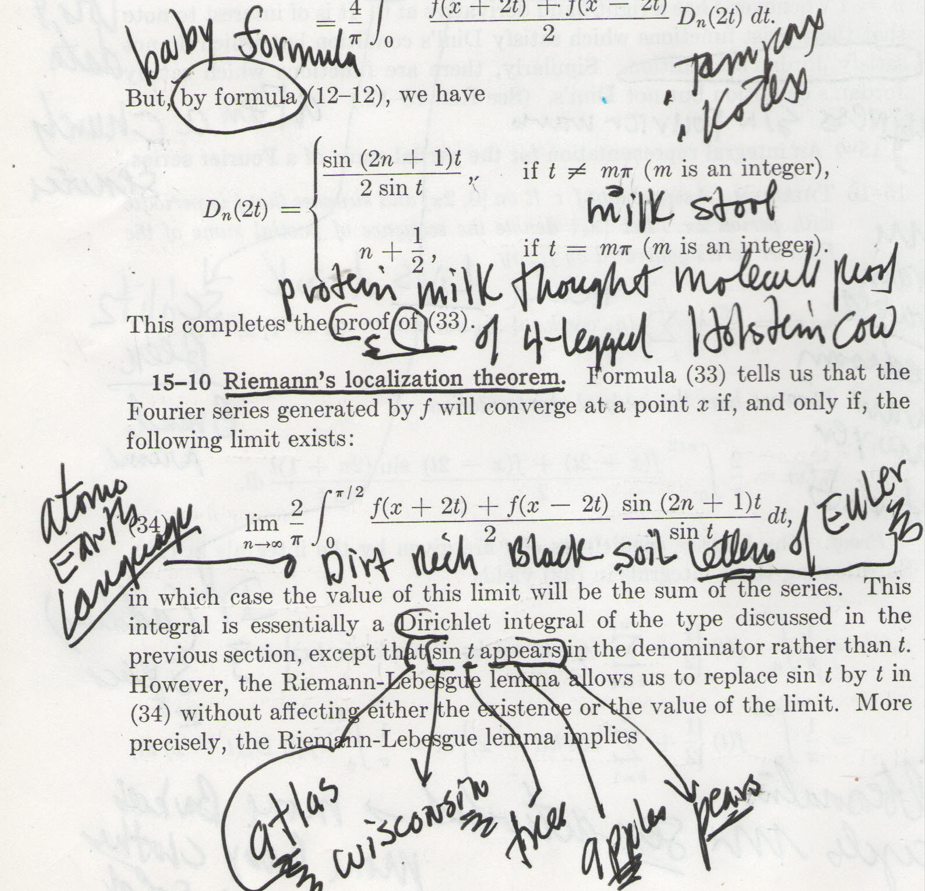 baby formula
4/π 0 f(x + 2t) + f(x 2t) / 2 Dₙ(2t) dt.
But, by formula (12–12), we have
Dₙ(2t) = { sin (2n + 1)t / 2 sin t, if t ≠ mπ (m is an integer),
milk stool
n + 1/2, if t = mπ (m is an integer).
protein milk thought molecule proof
This completes the proof of (33). of 4-legged Holstein Cow
15–10 Riemann's localization theorem. Formula (33) tells us that the
Fourier series generated by f will converge at a point x if, and only if, the
following limit exists:
atoms
Early
Language
(34) lim n→∞ 2/π ∫₀^(π/2) f(x + 2t) + f(x − 2t) / 2 sin (2n + 1)t / sin t dt,
Euler
Dirt Rech Black soil letters of
in which case the value of this limit will be the sum of the series. This
integral is essentially a Dirichlet integral of the type discussed in the
previous section, except that sin t appears in the denominator rather than t.
However, the Riemann-Lebesgue lemma allows us to replace sin t by t in
(34) without affecting either the existence or the value of the limit. More
precisely, the Riemann-Lebesgue lemma implies
atlas wisconsin tree apples pears